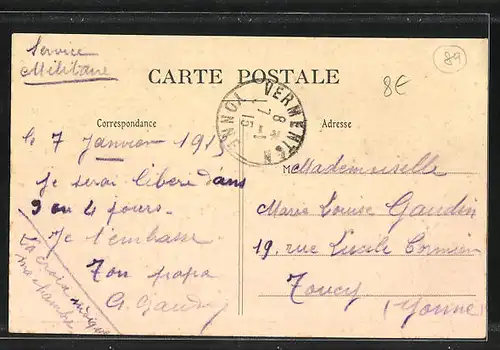 Service
Militaire
89
8€
CARTE POSTALE
Correspondance
Adresse
VERMENTON
YONNE
8 -1
15
le 7 Janvier 1915
Je serai libéré dans
3 ou 4 jours.
Je t'embrasse
Ton papa
G. Gaudin
La croix
ma chambre
Mademoiselle
Marie Louise Gaudin
19, rue Lucile Cormier
Toucy
(Yonne)